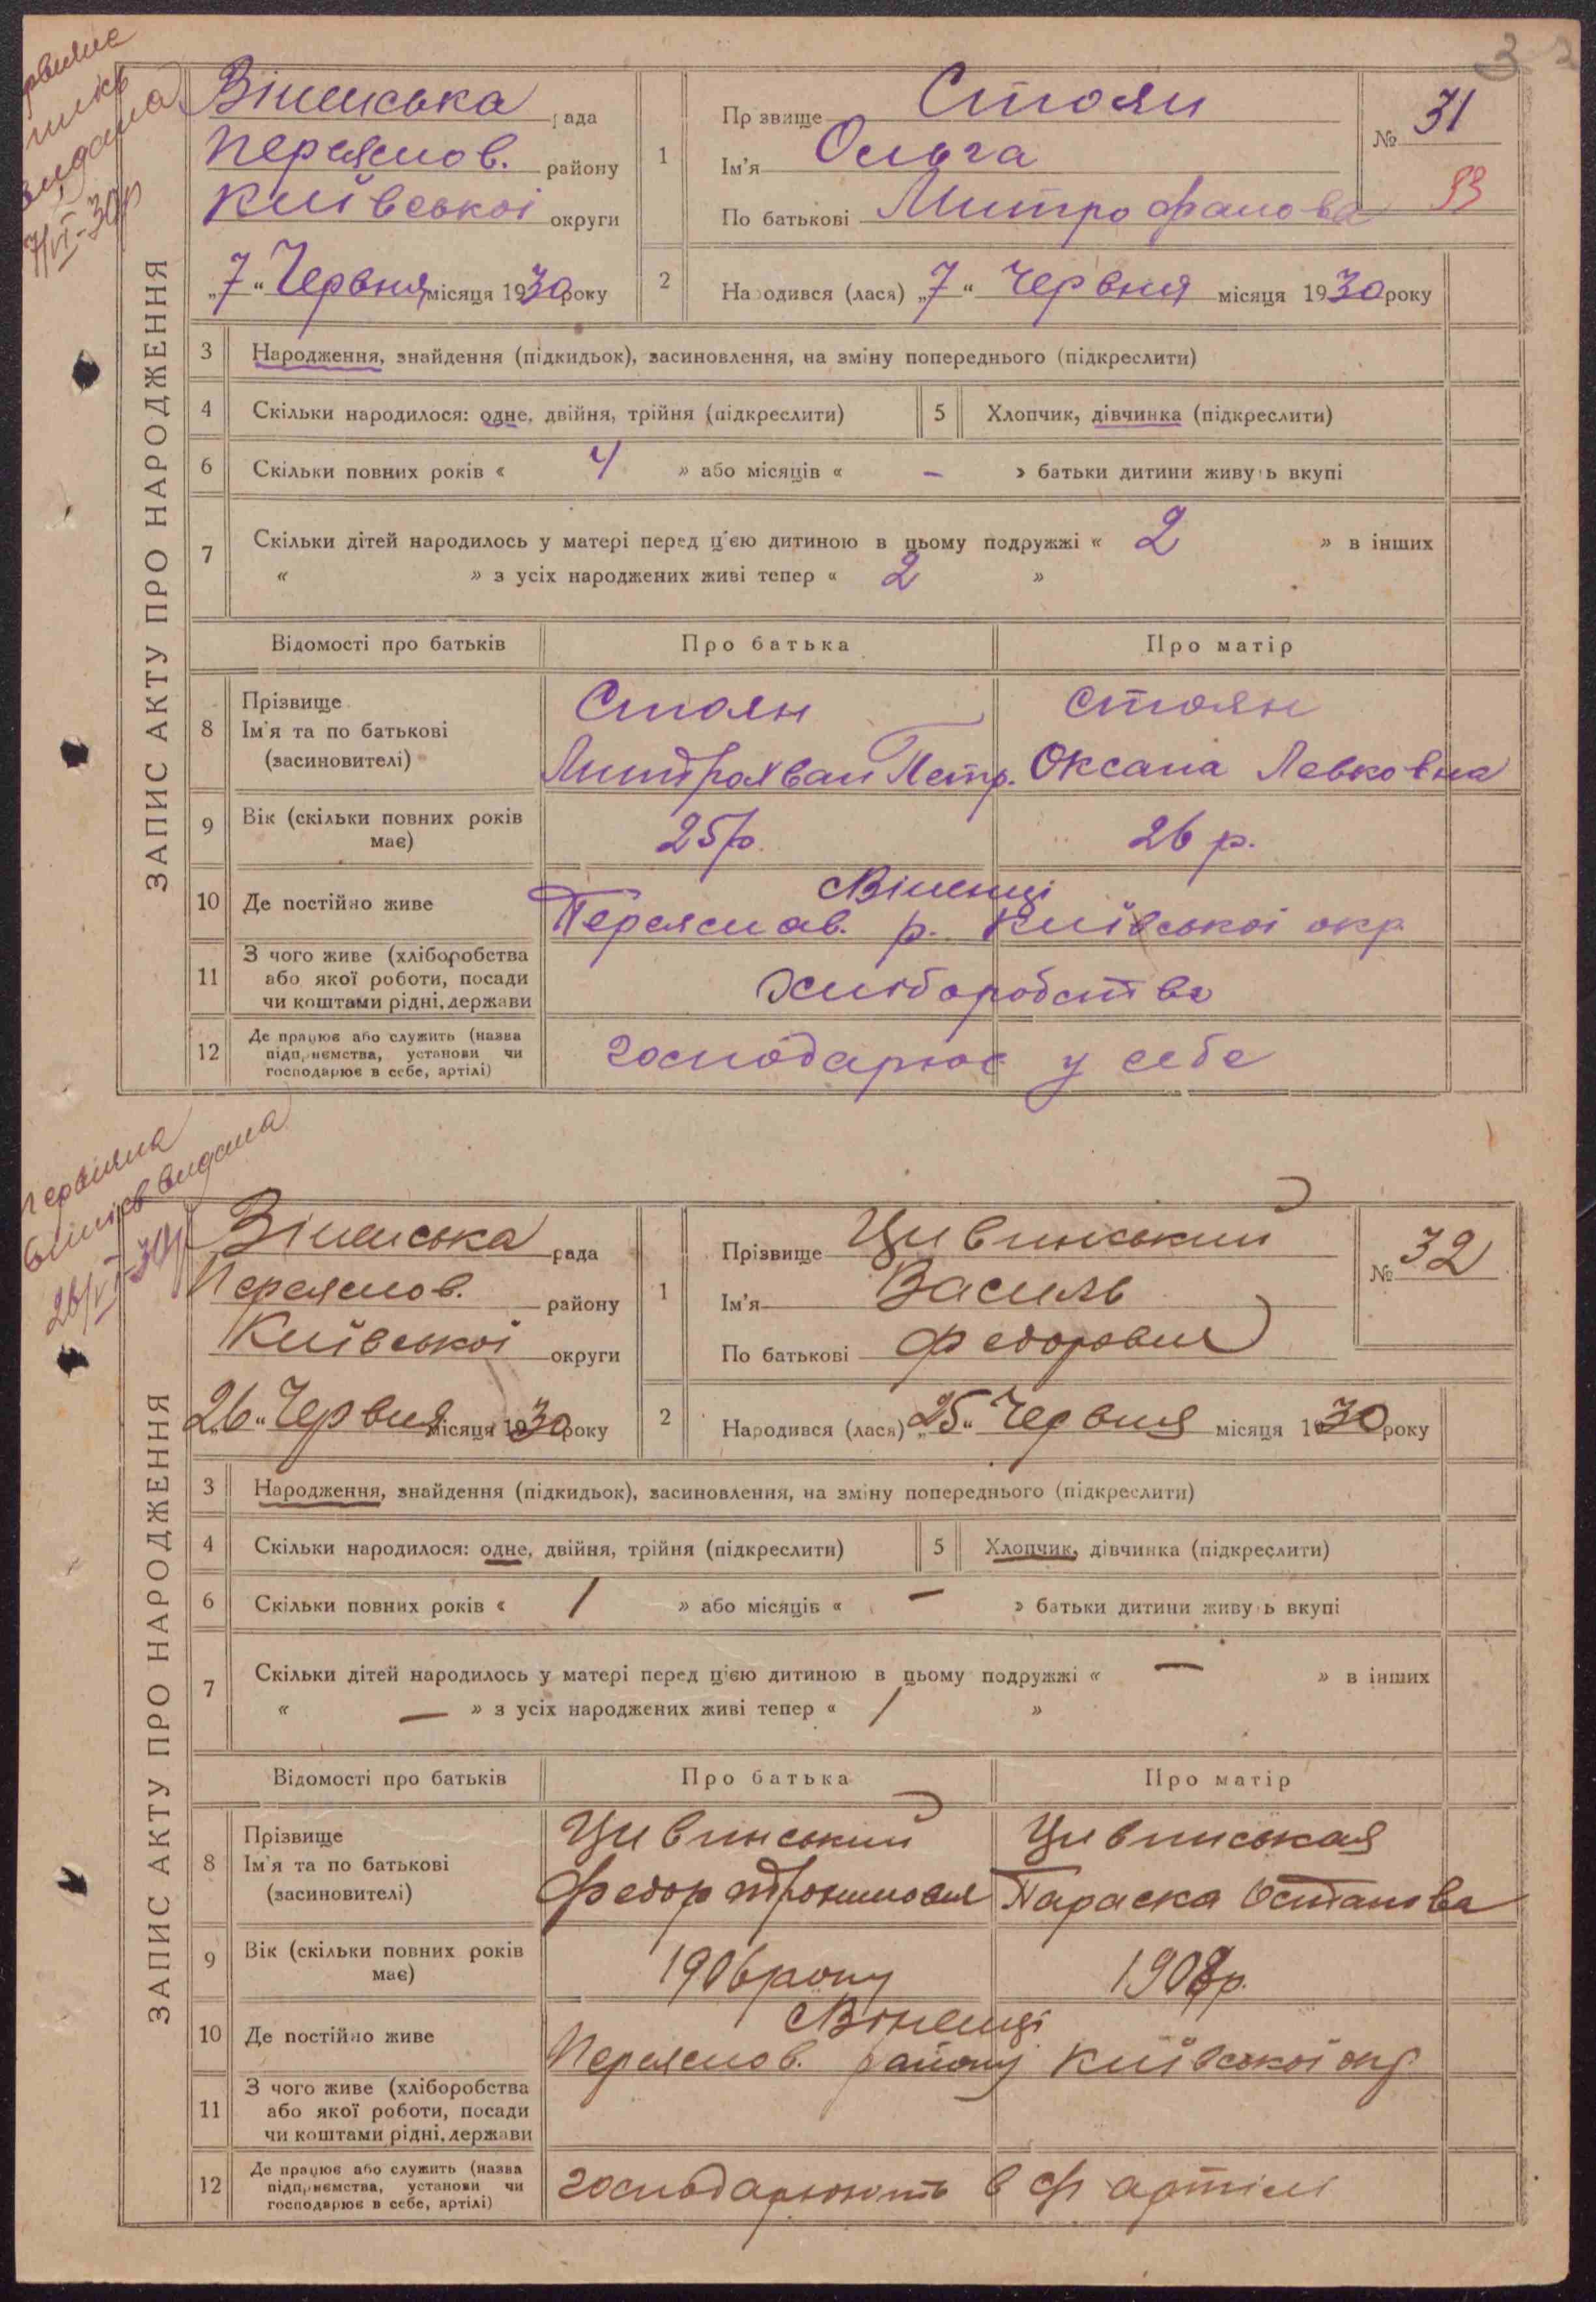 3
видана
7/VI-30р
ЗАПИС АКТУ ПРО НАРОДЖЕННЯ
Віненська рада
Переяслов. району
Київської округи
„7“ Червня місяця 1930 року
1
Прізвище Стоян
Ім'я Ольга
По батькові Митрофанова
№ 31
93
2
Народився (лася) „7“ Червня місяця 1930 року
3 Народження, знайдення (підкидьок), засиновлення, на зміну попереднього (підкреслити)
4 Скільки народилося: одне, двійня, трійня (підкреслити) 5 Хлопчик, дівчинка (підкреслити)
6 Скільки повних років « 4 » або місяців « - » батьки дитини живуть вкупі
7 Скільки дітей народилось у матері перед ц'єю дитиною в цьому подружжі « 2 » в інших
« » з усіх народжених живі тепер « 2 »
Відомості про батьків Про батька Про матір
8 Прізвище Ім'я та по батькові (засиновителі)
Стоян Стоян
Митрохван Петр. Оксана Левковна
9 Вік (скільки повних років має) 25 р. 26 р.
10 Де постійно живе
Віненці
Переяслав. р. Київської окр.
11 З чого живе (хліборобства або якої роботи, посади чи коштами рідні, держави
Хліборобство
12 Де працює або служить (назва підприємства, установи чи господарює в себе, артілі)
господарює у себе
первісна
видана
26/VI-30р
ЗАПИС АКТУ ПРО НАРОДЖЕННЯ
Віненська рада
Переяслов. району
Київської округи
„26“ Червня місяця 1930 року
1
Прізвище Цивинський
Ім'я Василь
По батькові Федорович
№ 32
2
Народився (лася) „25“ Червня місяця 1930 року
3 Народження, знайдення (підкидьок), засиновлення, на зміну попереднього (підкреслити)
4 Скільки народилося: одне, двійня, трійня (підкреслити) 5 Хлопчик, дівчинка (підкреслити)
6 Скільки повних років « 1 » або місяців « — » батьки дитини живуть вкупі
7 Скільки дітей народилось у матері перед ц'єю дитиною в цьому подружжі « — » в інших
« — » з усіх народжених живі тепер « 1 »
Відомості про батьків Про батька Про матір
8 Прізвище Ім'я та по батькові (засиновителі)
Цивинський Цивинськая
Федор Трохимович Параска Остапова
9 Вік (скільки повних років має) 1906 року 1908 р.
10 Де постійно живе
Віненці
Переяслов. району Київської окр
11 З чого живе (хліборобства або якої роботи, посади чи коштами рідні, держави
12 Де працює або служить (назва підприємства, установи чи господарює в себе, артілі)
господарюють в артілі